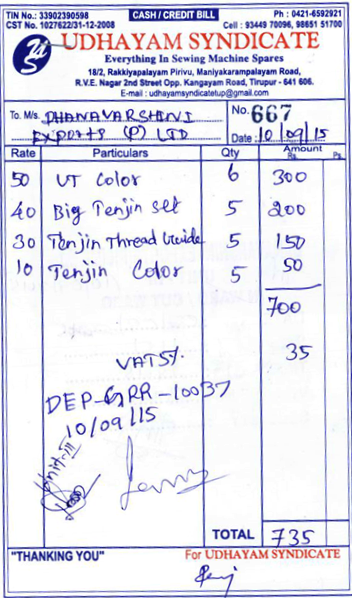 TIN No.: 33902390598 CASH / CREDIT BILL Ph : 0421-6592921
CST No. 1027622/31-12-2008 Cell : 93449 70096, 98651 51700
UDHAYAM SYNDICATE
Everything In Sewing Machine Spares
18/2, Rakkiyapalayam Pirivu, Maniyakarampalayam Road,
R.V.E. Nagar 2nd Street Opp. Kangayam Road, Tirupur - 641 606.
E-mail : udhayamsyndicatetup@gmail.com
To. M/s. DHANAVARSHINI No. 667
EXPORTS (P) LTD Date : 10/09/15
Rate Particulars Qty Amount
Rs. Ps.
50 UT Color 6 300
40 Big Tenjin Set 5 200
30 Tenjin Thread Guide 5 150
10 Tenjin Color 5 50
700
VAT 5% 35
DEP-GRR-10037
10/09/15
TOTAL 735
"THANKING YOU" For UDHAYAM SYNDICATE